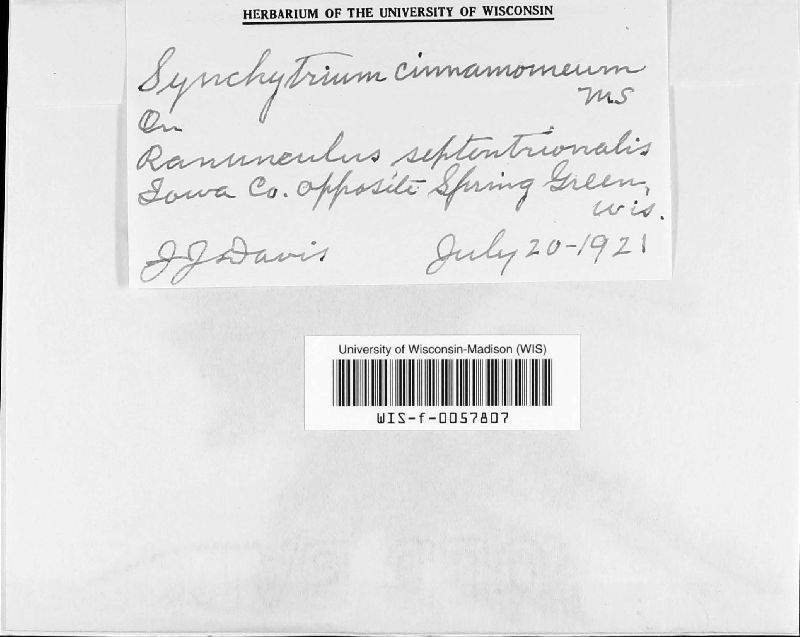 HERBARIUM OF THE UNIVERSITY OF WISCONSIN
Synchytrium cinnamomeum
ms
On
Ranunculus septentrionalis
Iowa Co. opposite Spring Green,
Wis.
J J Davis July 20-1921
University of Wisconsin-Madison (WIS)
WIS-f-0057807